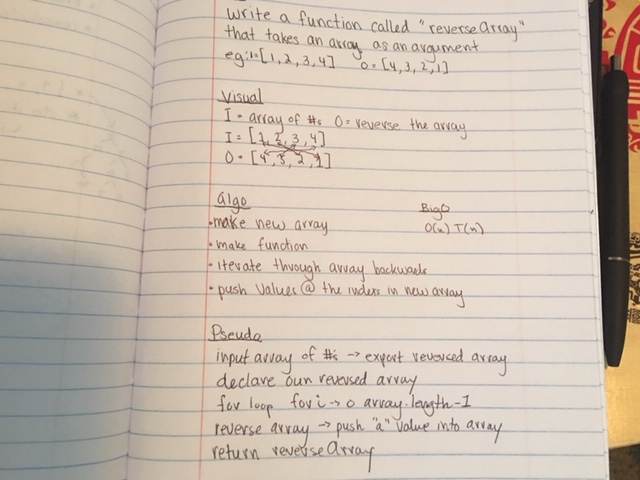 Write a function called "reverseArray"
that takes an array as an argument
eg: I=[1,2,3,4] O=[4,3,2,1]
Visual
I = array of #s O = reverse the array
I = [1, 2, 3, 4]
O = [4, 3, 2, 1]
algo
• make new array
• make function
• iterate through array backwards
• push values @ the indexs in new array
BigO
O(n) T(n)
Pseudo
input array of #s → export reversed array
declare our reversed array
for loop for i → 0 array.length-1
reverse array → push "a" value into array
return reverseArray